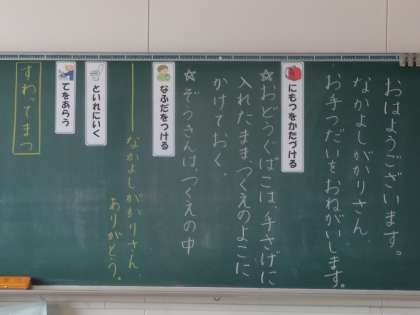 おはようございます。
なかよしがかりさん、
お手つだいをおねがいします。
にもつをかたづける
☆おどうぐばこは、手さげに
入れたまま、つくえのよこに
かけておく。
☆ぞうきんは、つくえの中
なふだをつける
なかよしがかりさん、
ありがとう。
といれにいく
てをあらう
すわってまつ